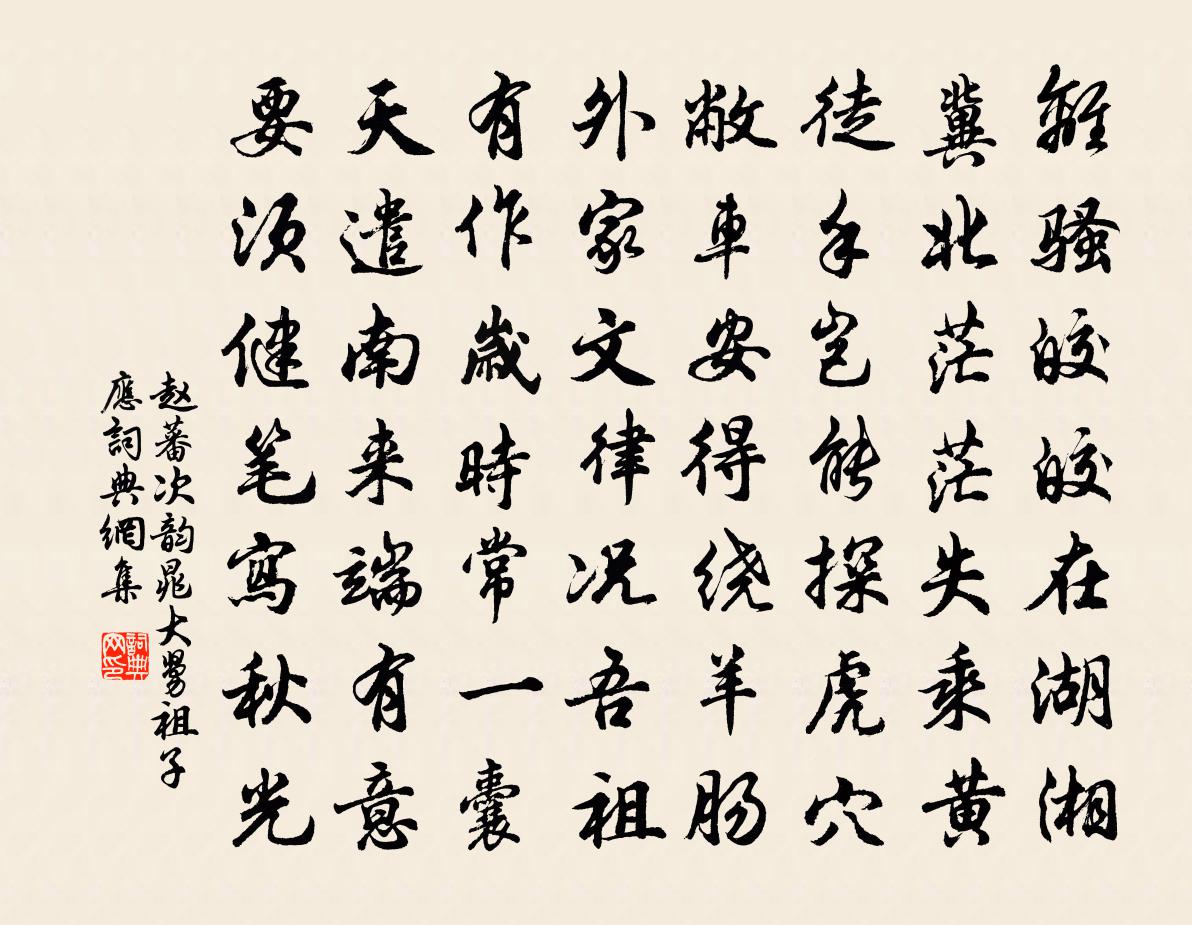 離骚皎皎在湖湘
冀北茫茫失乘黄
徒手岂能探虎穴
敝車安得绕羊肠
外家文律况吾祖
有作歲時常一囊
天遣南来端有意
要须健笔寫秋光
赵蕃次韵晁大舅祖子
應詞典網集
詞典
网印